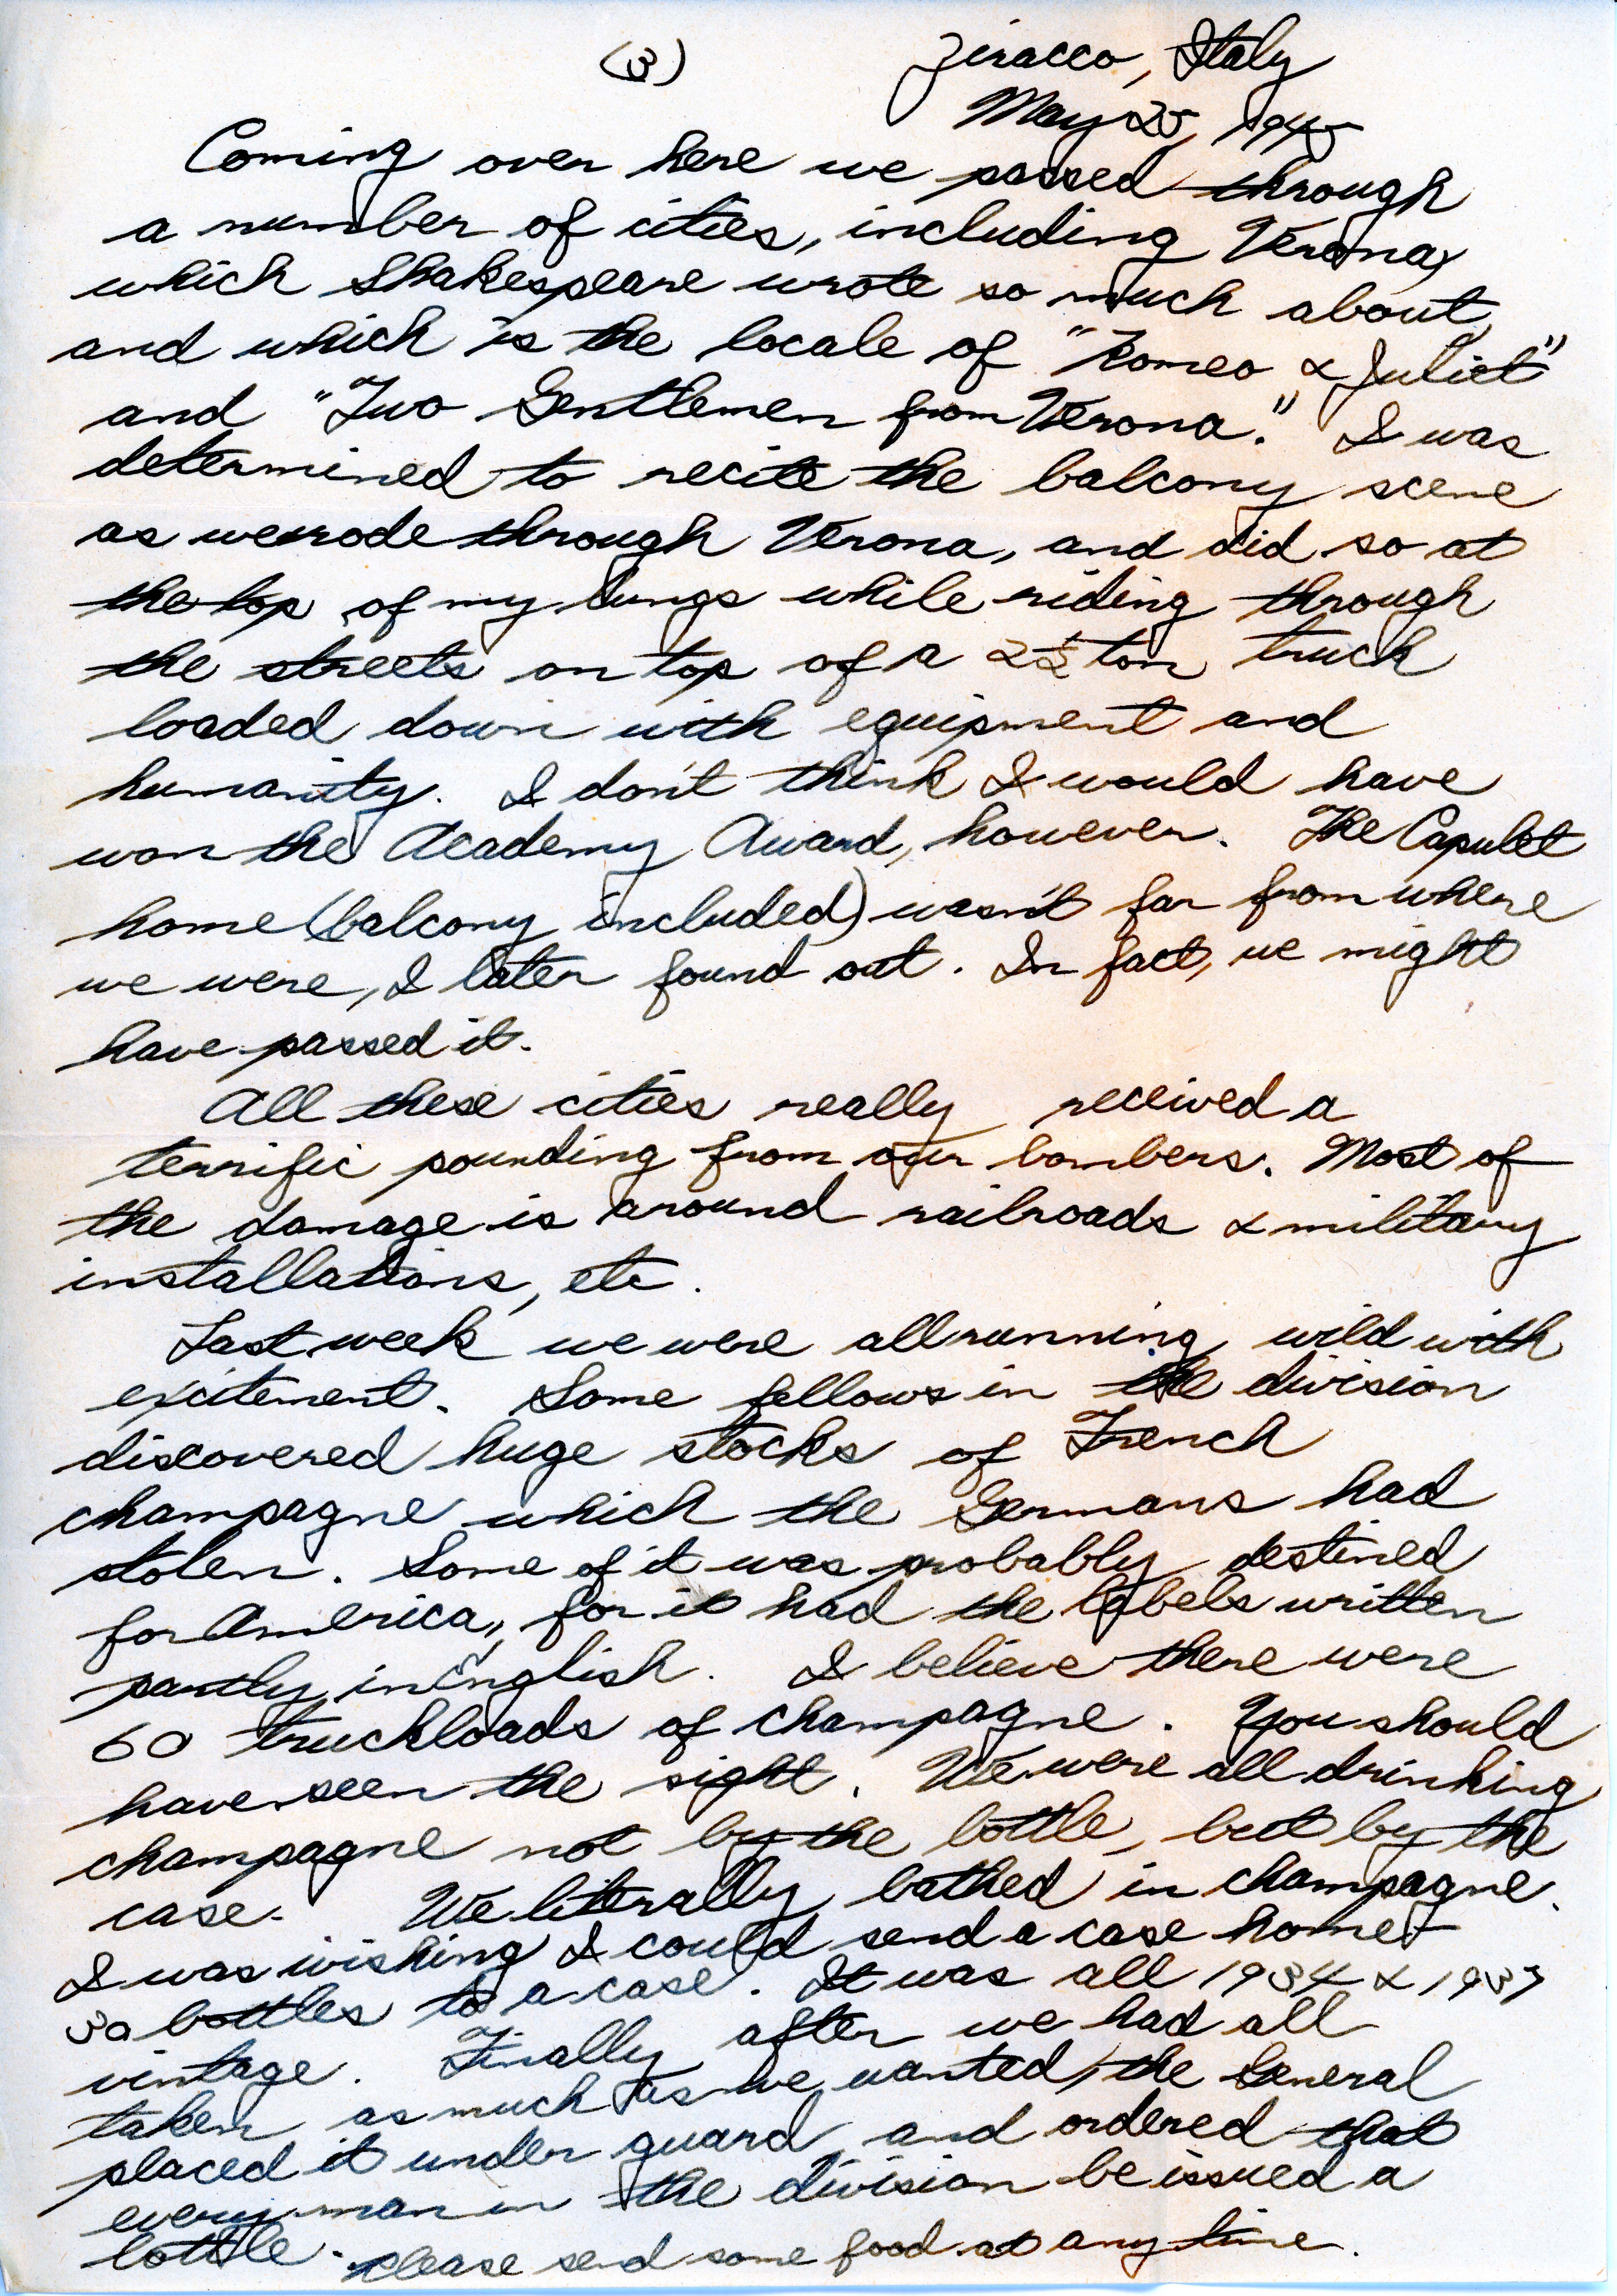 (3)
Ziracco, Italy
May 25, 1945
Coming over here we passed through
a number of cities, including Verona,
which Shakespeare wrote so much about,
and which is the locale of "Romeo & Juliet"
and "Two Gentlemen from Verona." I was
determined to recite the balcony scene
as we rode through Verona, and did so at
the top of my lungs while riding through
the streets on top of a 2½ ton truck
loaded down with equipment and
humanity. I don't think I would have
won the Academy Award, however. The Capulet
home (balcony included) wasn't far from where
we were, I later found out. In fact, we might
have passed it.
All these cities really received a
terrific pounding from our bombers. Most of
the damage is around railroads & military
installations, etc.
Last week we were all running wild with
excitement. Some fellows in the division
discovered huge stocks of French
champagne which the Germans had
stolen. Some of it was probably destined
for America, for it had the labels written
partly in English. I believe there were
60 truckloads of champagne. You should
have seen the sight. We were all drinking
champagne not by the bottle, but by the
case. We literally bathed in champagne.
I was wishing I could send a case home -
30 bottles to a case. It was all 1934 & 1937
vintage. Finally after we had all
taken as much as we wanted, the General
placed it under guard, and ordered that
every man in the division be issued a
bottle. Please send some food at any time.